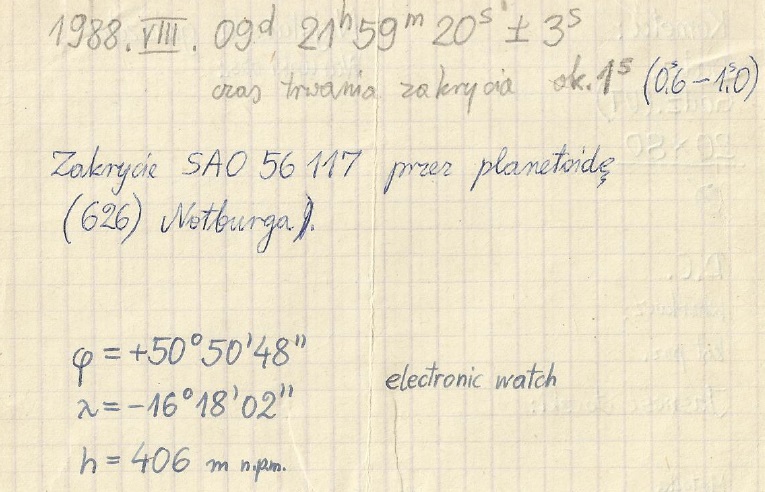 1988.VIII. 09ᵈ 21ʰ59ᵐ20ˢ ± 3ˢ
czas trwania zakrycia ok. 1ˢ (0ˢ.6 – 1ˢ.0)
Zakrycie SAO 56 117 przez planetoidę
(626) Notburga).
φ = +50°50'48"
λ = –16°18'02"
electronic watch
h = 406 m n.p.m.